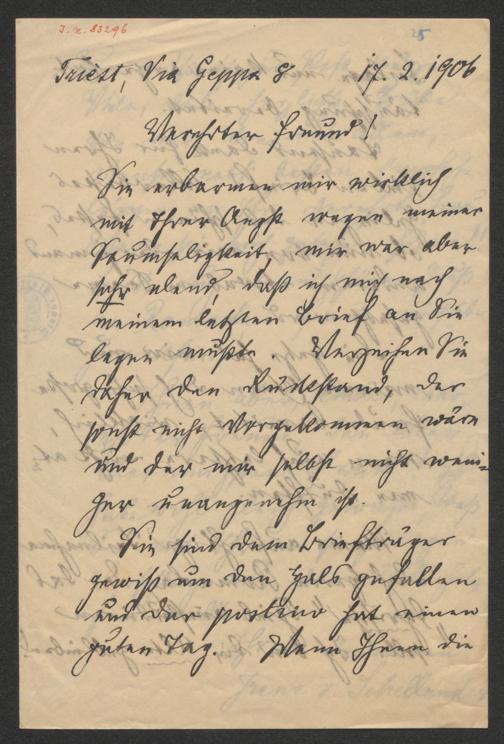 J. N. 83296
25
Triest, Via Geppa 8 17. 2. 1906
Verehrter Freund!
Sie erbarmen mir wirklich
mit Ihrer Angst wegen meiner
Saumseligkeit, mir war aber
sehr elend, daß ich mich nach
meinem letzten Brief an Sie
legen mußte. Verzeihen Sie
daher den Rückstand, der
sonst nicht vorgekommen wäre
und der mir selbst nicht weni-
ger unangenehm ist.
Sie sind dem Briefträger
gewiß um den Hals gefallen
und der postino hat einen
guten Tag. Wenn Ihnen die